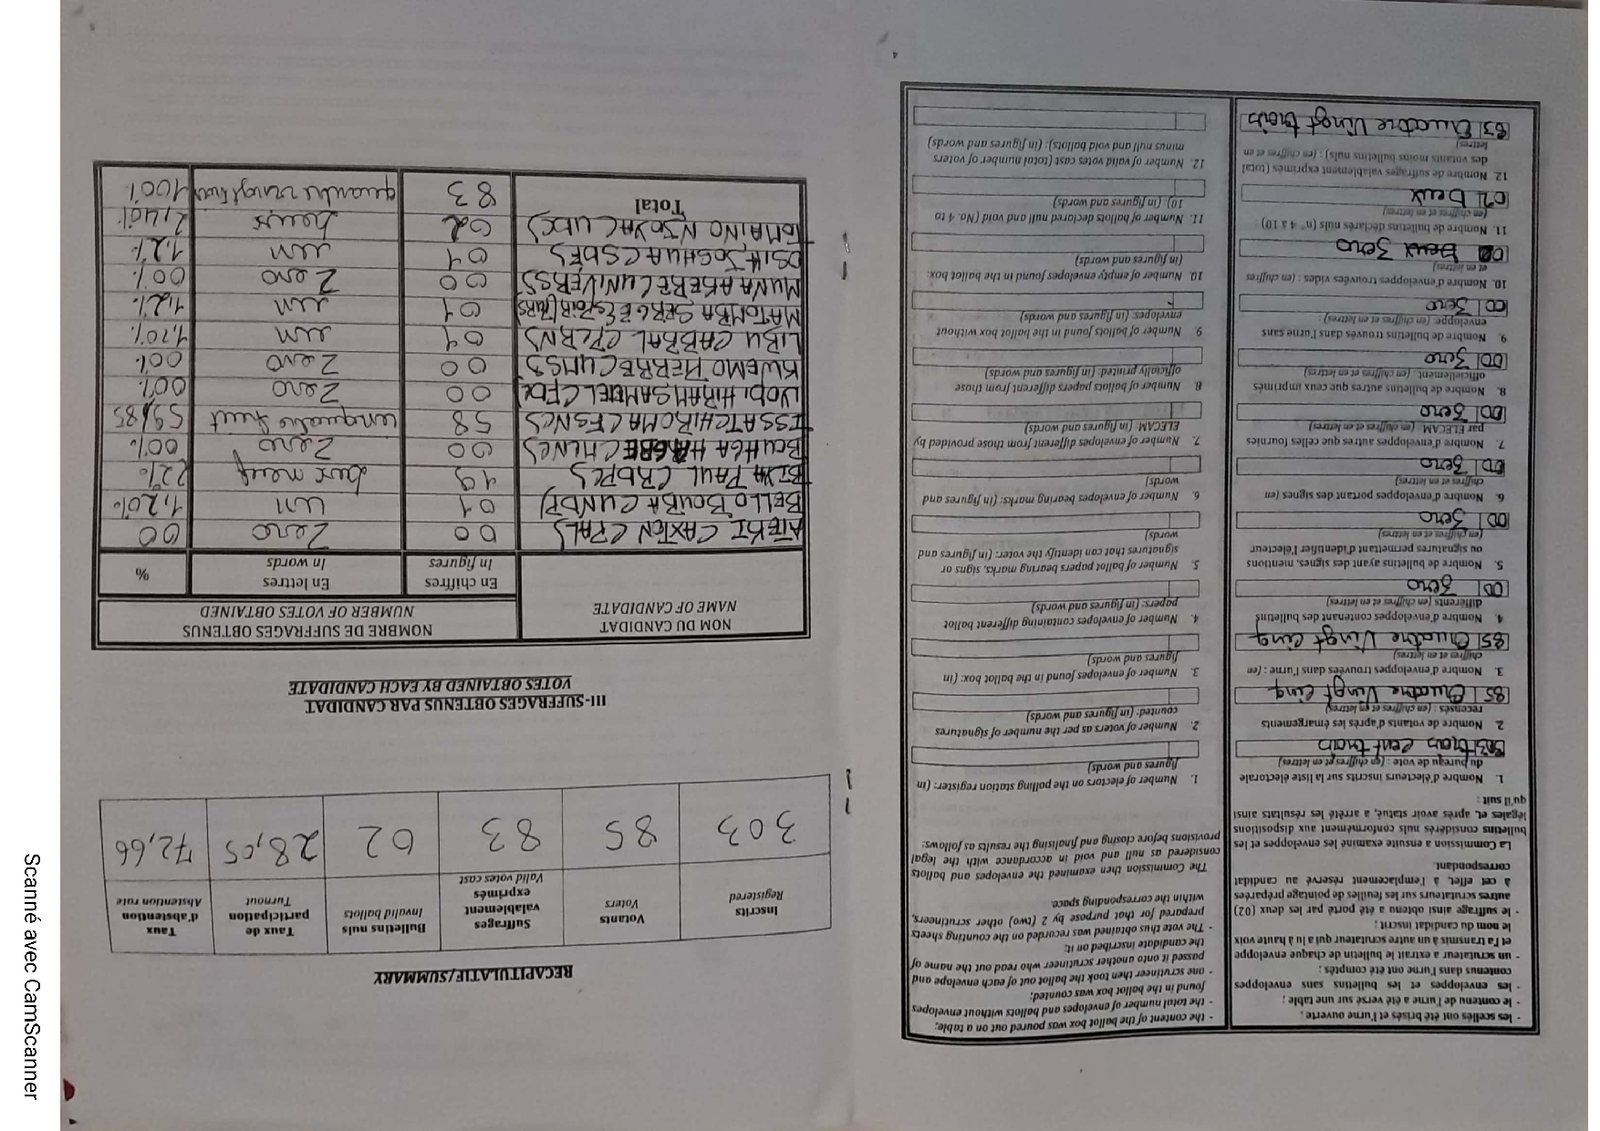 - les scellés ont été brisés et l'urne ouverte ;
- le contenu de l'urne a été versé sur une table ;
- les enveloppes et les bulletins sans enveloppes
contenus dans l'urne ont été comptés ;
- un scrutateur a extrait le bulletin de chaque enveloppe
et l'a transmis à un autre scrutateur qui l'a lu à haute voix
le nom du candidat inscrit ;
- le suffrage ainsi obtenu a été porté par les deux (02)
autres scrutateurs sur les feuilles de pointage préparées
à cet effet, à l'emplacement réservé au candidat
correspondant
La Commission a ensuite examiné les enveloppes et les
bulletins considérés nuls conformément aux dispositions
légales et, après avoir statué, a arrêté les résultats ainsi
qu'il suit :
1. Nombre d'électeurs inscrits sur la liste électorale
du bureau de vote : (en chiffres et en lettres)
303 trois cent trois
2. Nombre de votants d'après les émargements
recensés : (en chiffres et en lettres)
85 Quatre Vingt Cinq
3. Nombre d'enveloppes trouvées dans l'urne : (en
chiffres et en lettres)
85 Quatre Vingt Cinq
4. Nombre d'enveloppes contenant des bulletins
différents (en chiffres et en lettres)
00 Zero
5. Nombre de bulletins ayant des signes, mentions
ou signatures permettant d'identifier l'électeur
(en chiffres et en lettres)
00 Zero
6. Nombre d'enveloppes portant des signes (en
chiffres et en lettres)
00 Zero
7. Nombre d'enveloppes autres que celles fournies
par ELECAM (en chiffres et en lettres)
00 Zero
8. Nombre de bulletins autres que ceux imprimés
officiellement (en chiffres et en lettres)
00 Zero
9. Nombre de bulletins trouvés dans l'urne sans
enveloppe (en chiffres et en lettres)
00 Zero
10. Nombre d'enveloppes trouvées vides : (en chiffres
et en lettres)
Zero
11. Nombre de bulletins déclarés nuls (n° 4 à 10)
(en chiffres et en lettres)
02 Deux
12. Nombre de suffrages valablement exprimés (total
des votants moins bulletins nuls) : (en chiffres et en
lettres)
83 Quatre Vingt trois
- the content of the ballot box was poured out on a table;
- the total number of envelopes and ballots without envelopes
found in the ballot box was counted;
- one scrutineer then took the ballot out of each envelope and
passed it onto another scrutineer who read out the name of
the candidate inscribed on it;
- The vote thus obtained was recorded on the counting sheets
prepared for that purpose by 2 (two) other scrutineers,
within the corresponding space.
The Commission then examined the envelopes and ballots
considered as null and void in accordance with the legal
provisions before closing and finalising the results as follows:
1. Number of electors on the polling station register: (in
figures and words)
2. Number of voters as per the number of signatures
counted: (in figures and words)
3. Number of envelopes found in the ballot box: (in
figures and words)
4. Number of envelopes containing different ballot
papers: (in figures and words)
5. Number of ballot papers bearing marks, signs or
signatures that can identify the voter: (in figures and
words)
6. Number of envelopes bearing marks: (in figures and
words)
7. Number of envelopes different from those provided by
ELECAM: (in figures and words)
8. Number of ballots papers different from those
officially printed: (in figures and words)
9. Number of ballots found in the ballot box without
envelopes: (in figures and words)
10. Number of empty envelopes found in the ballot box:
(in figures and words)
11. Number of ballots declared null and void (No. 4 to
10): (in figures and words)
12. Number of valid votes cast (total number of voters
minus null and void ballots): (in figures and words)
4
RECAPITULATIF/SUMMARY
Inscrits Registered
Votants Voters
Suffrages valablement exprimés Valid votes cast
Bulletins nuls Invalid ballots
Taux de participation Turnout
Taux d'abstention Abstention rate
303 85 83 02 28,05 72,66
III-SUFFRAGES OBTENUS PAR CANDIDAT
VOTES OBTAINED BY EACH CANDIDATE
NOM DU CANDIDAT NOMBRE DE SUFFRAGES OBTENUS
NAME OF CANDIDATE NUMBER OF VOTES OBTAINED
En chiffres En lettres %
In figures In words
ATEKI CAXTON (PAL) 00 Zero 00
BELLO BOUBA (UNDP) 01 un 1,20%
BIYA PAUL (RDPC) 19 neuf 22%
BOUHGA HAGBE (MLNC) 00 Zero 00%
ISSA TCHIROMA (FSNC) 58 cinquante huit 59,85
IYODI HIRAM SAMUEL (FDC) 00 Zero 00%
KWEMO PIERRE (UMS) 00 Zero 00%
LIBII CABRAL (PCRN) 01 un 1,20%
MATOMBA SERGE ESPOIR (PURS) 01 un 1,2%
MUNA AKERE (UNIVERS) 00 Zero 00%
OSIH JOSHUA (SDF) 01 un 1,2%
TOMAINO NDAM NJOYA (UDC) 02 Deux 2,40%
Total 83 quatre vingt trois 100%
Scanné avec CamScanner